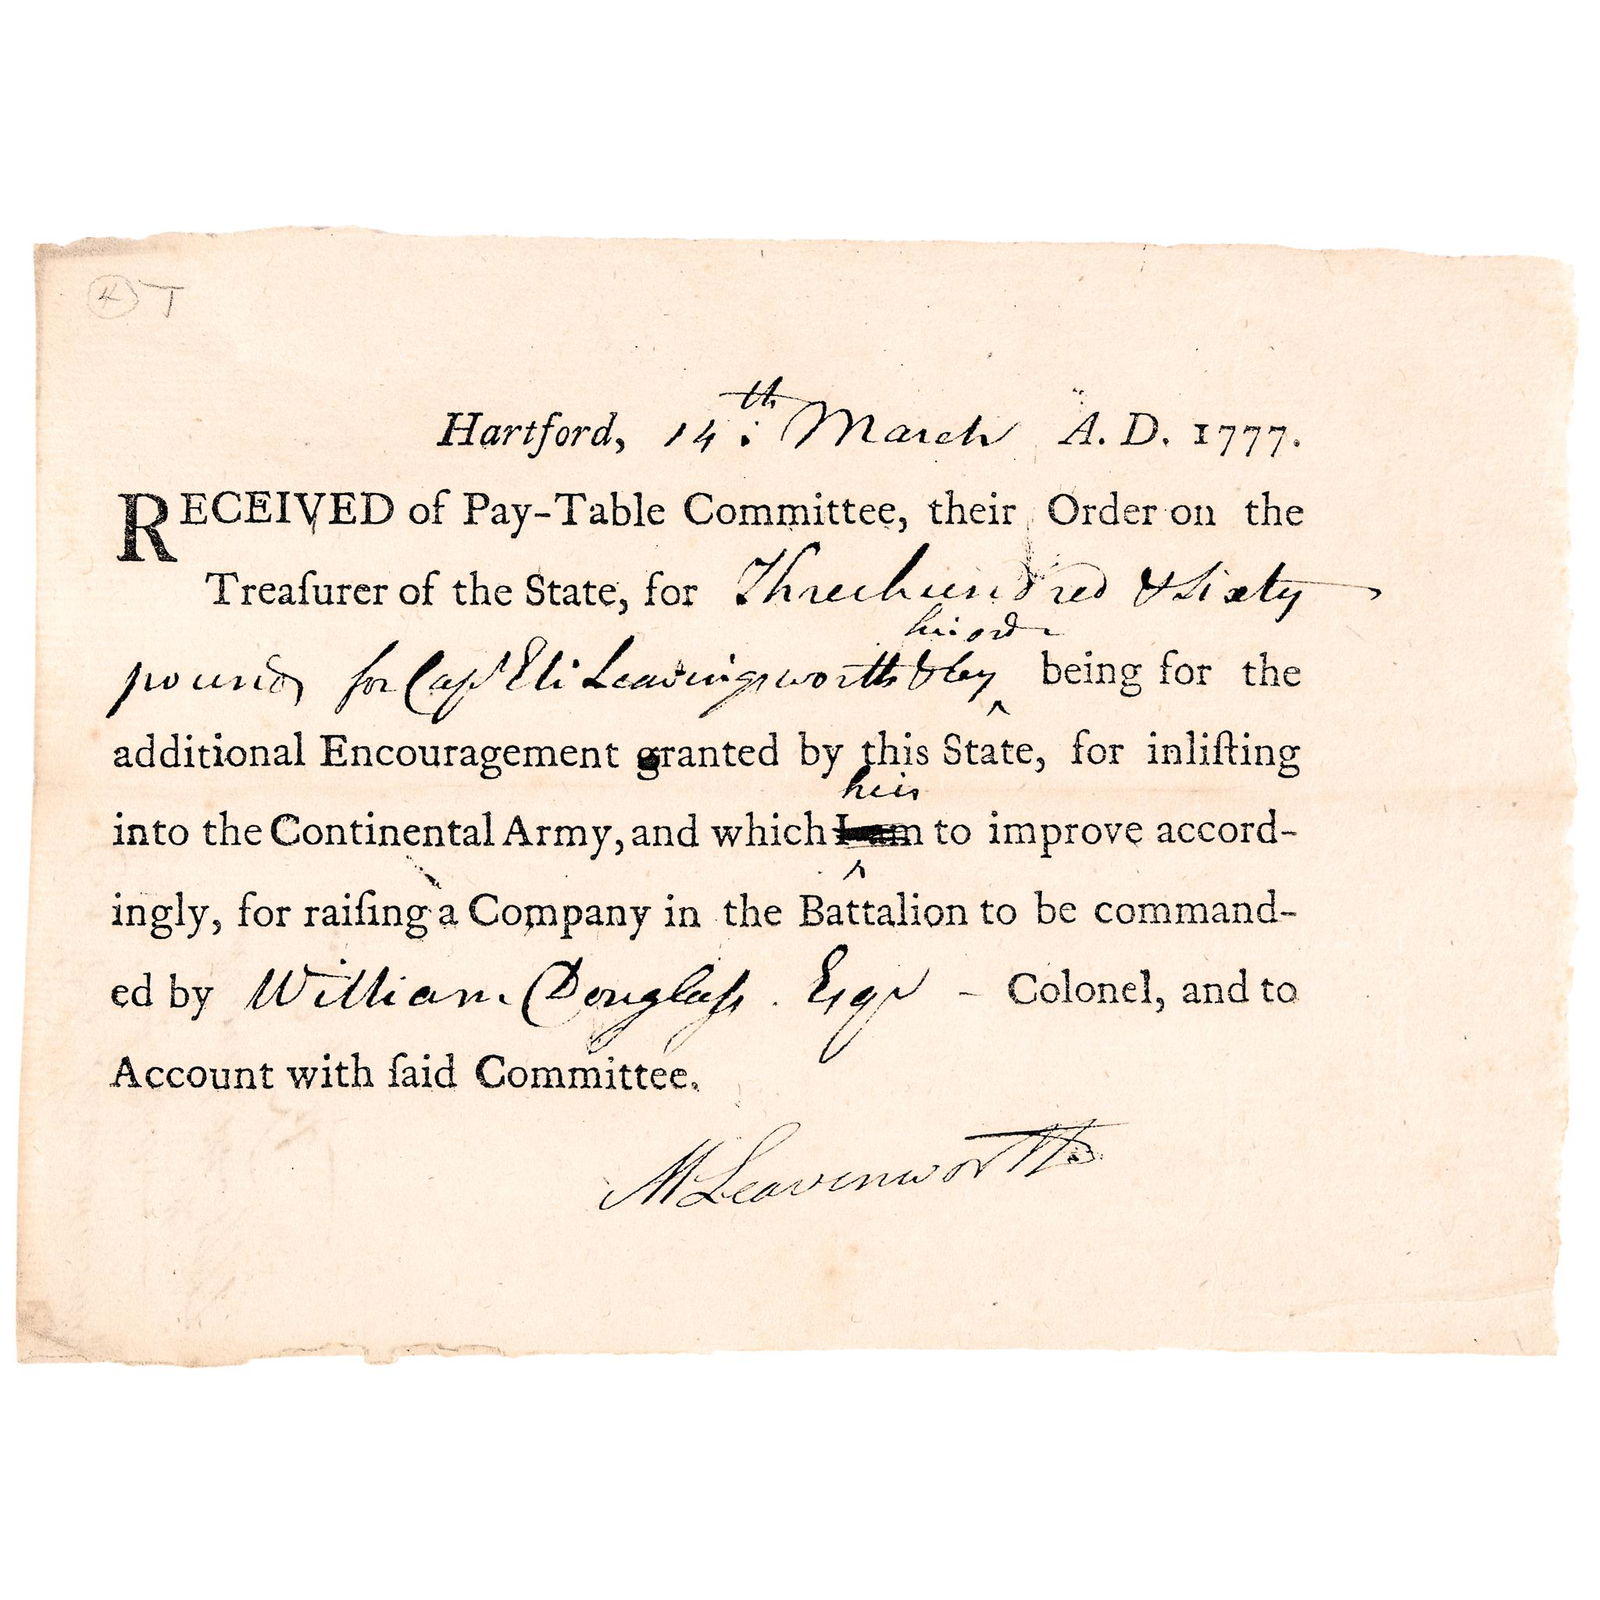 ④ T
Hartford, 14.th March A. D. 1777.
RECEIVED of Pay-Table Committee, their Order on the
Treaſurer of the State, for Three hundred & Sixty
his ordr
pounds for Capt Eli Leavingsworth & by being for the
additional Encouragement granted by this State, for inliſting
he is
into the Continental Army, and which I am to improve accord-
ingly, for raiſing a Company in the Battalion to be command-
ed by William Douglaſs. Esqr - Colonel, and to
Account with ſaid Committee.
M Leavenworth